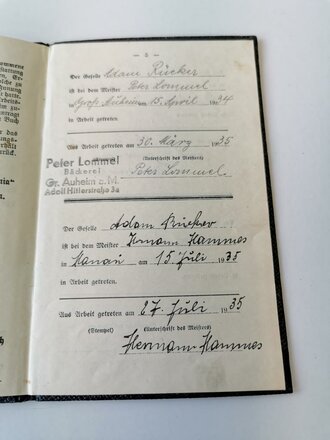 — 5 —
Der Geselle Adam Rücker
ist bei dem Meister Peter Lommel
in Groß Auheim am 15. April 1934
in Arbeit getreten.
Aus Arbeit getreten am 30. März 1935
(Unterschrift des Meisters)
Peter Lommel
Bäckerei
Gr. Auheim a.M.
Adolf Hitlerstraße 3a
Peter Lommel.
Der Geselle Adam Rücker
ist bei dem Meister Hermann Hammes
in Hanau am 15 Juli 1935
in Arbeit getreten.
Aus Arbeit getreten am 27. Juli 1935
(Stempel) (Unterschrift des Meisters)
Hermann Hammes